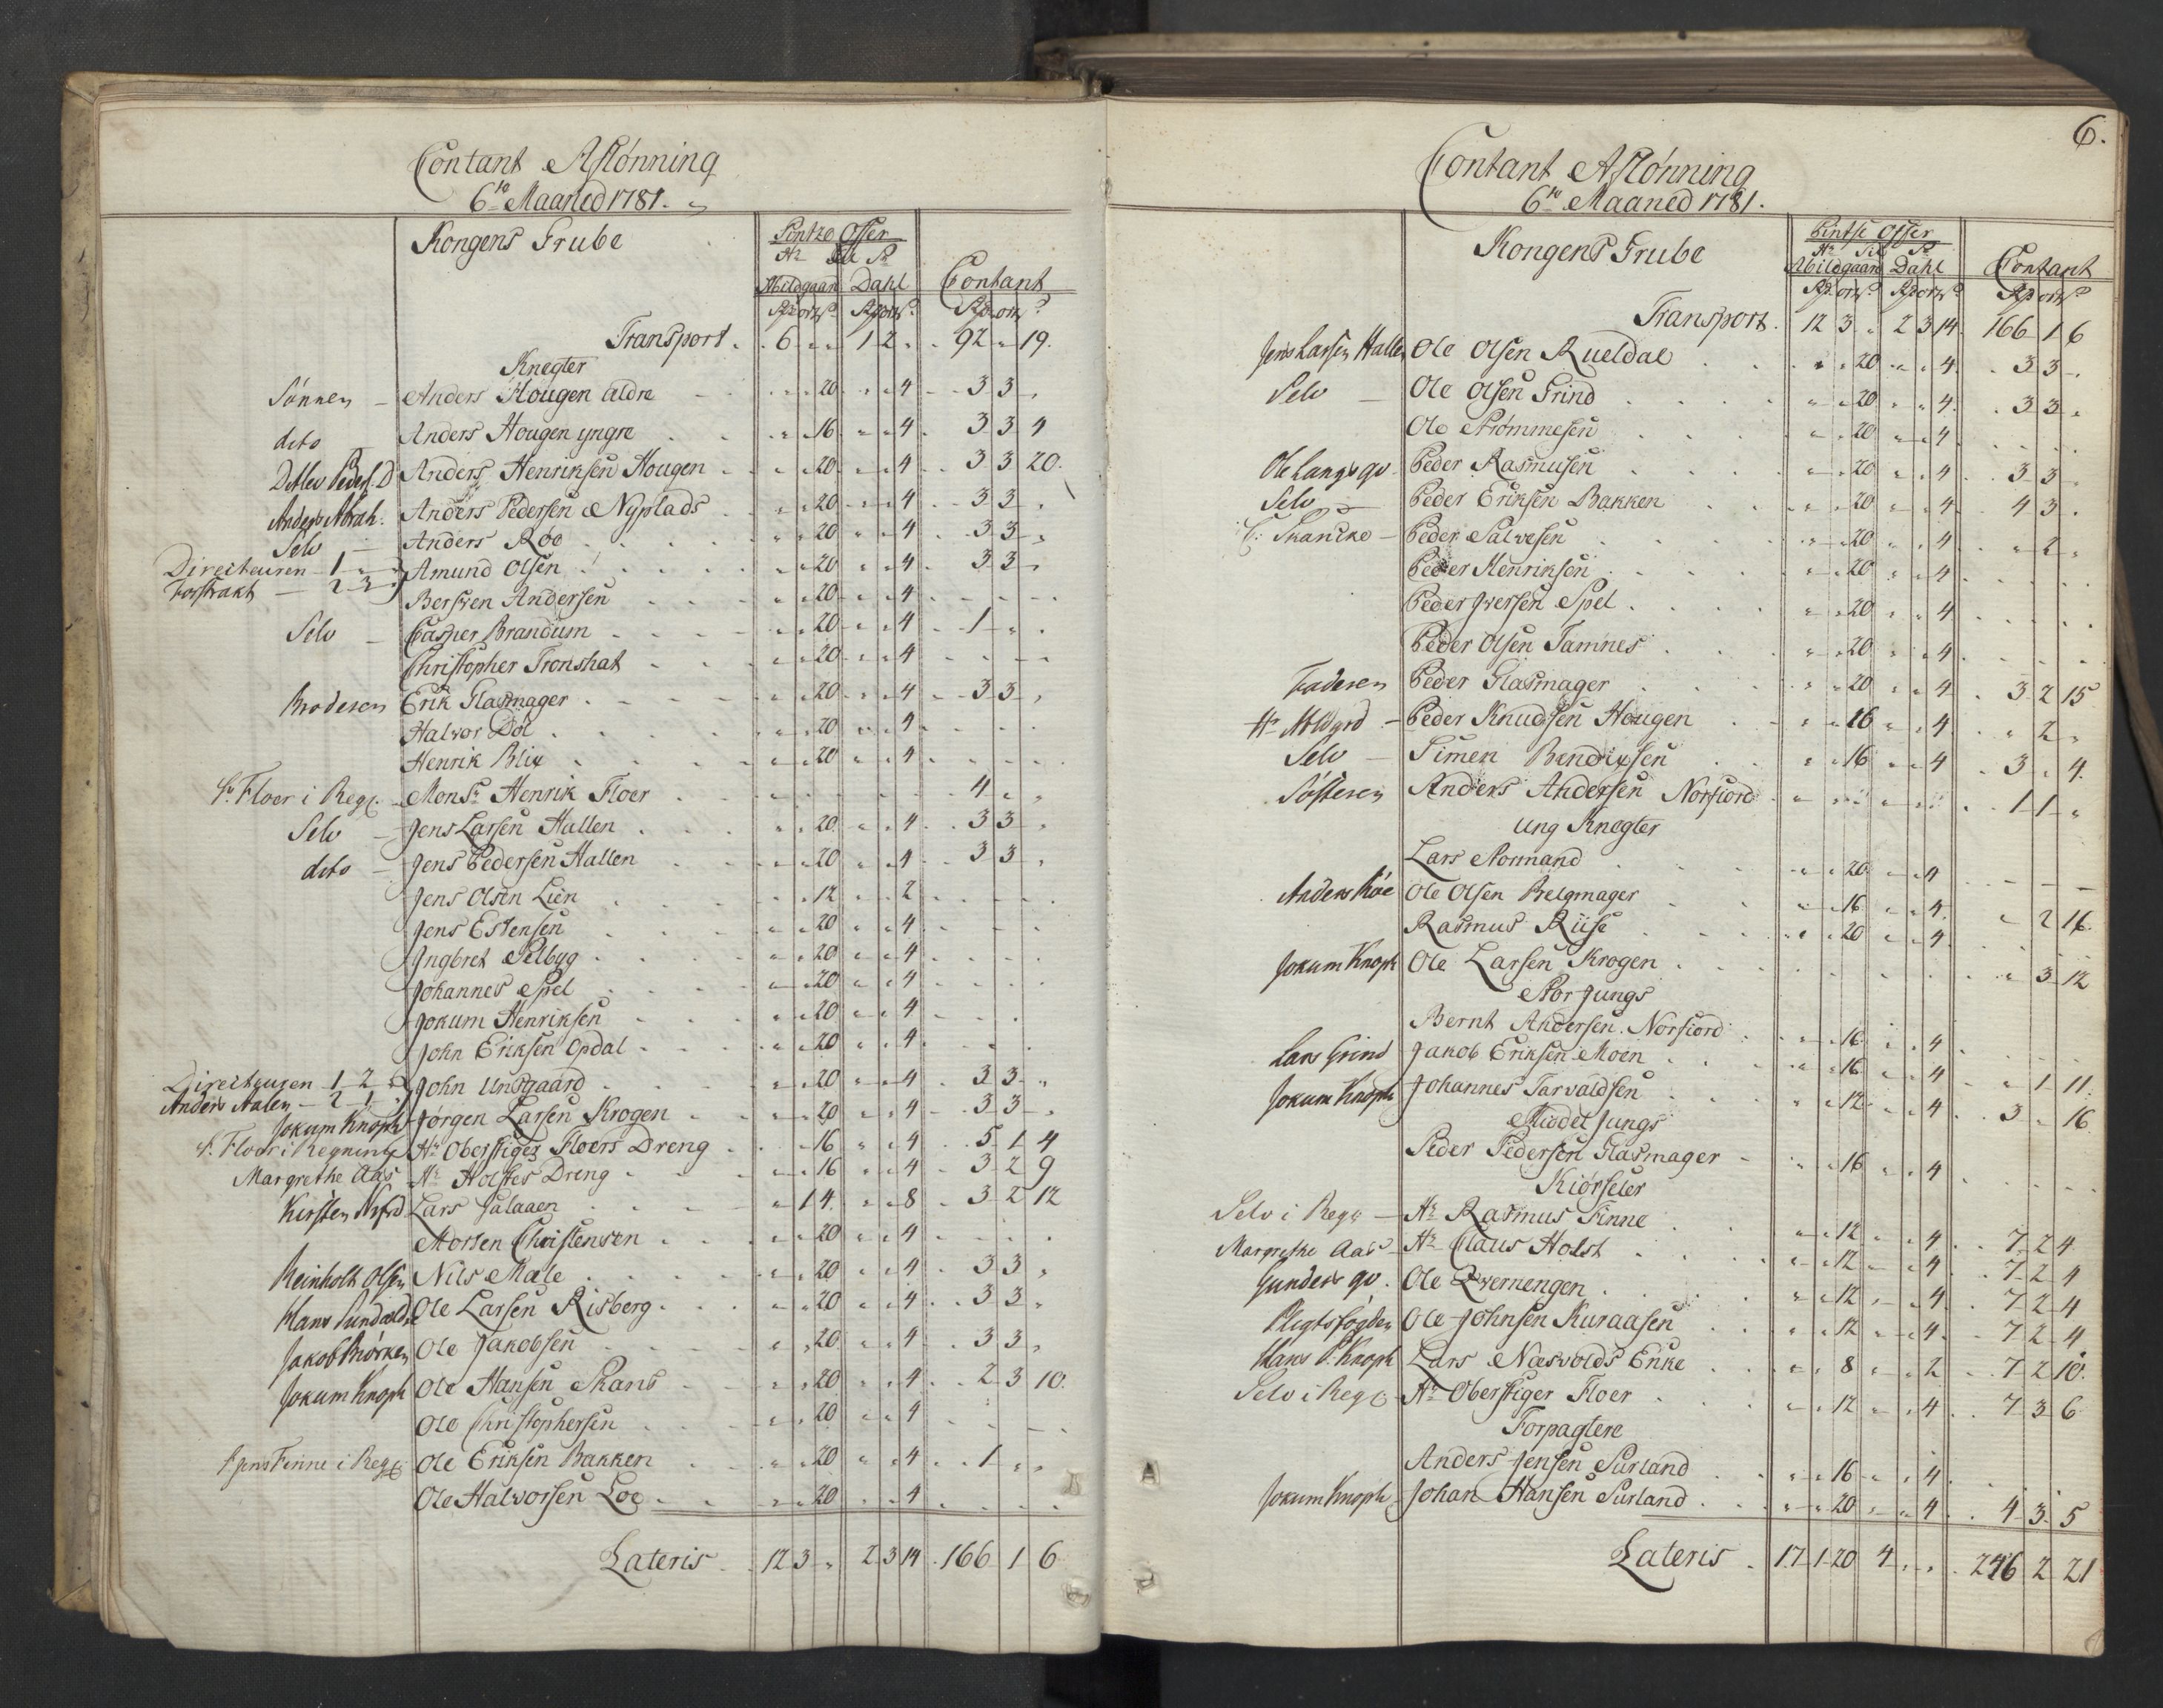 Contant Aflønning
6te Maaned 1781.
Kongens Grube
Pintze Offer
Hr
Abildgaard Dahl Contant
Transport. 6 " " 1 2 " 92 " 19.
Knegter
Sønnen - Anders Hougen ældre " " 20 " " 4 3 3 "
dito Anders Hougen yngre " " 16 " " 4 3 3 4
Ditlev Peders. D Anders Henriksen Hougen " " 20 " " 4 3 3 20.
Anders Pedersen Nyplads " " 20 " " 4 3 3 "
Selv - Anders Røe " " 20 " " 4 3 3 "
Directeuren 1 " "
Amund Olsen " " 20 " " 4 3 3 "
Forstrakt - 2 3 "
Bersven Andersen " " 20 " " 4
Selv - Casper Brandum " " 20 " " 4 1 " "
Christopher Tronshat " " 20 " " 4
Broderen Erik Glasmager " " 20 " " 4 3 3 "
Halvor Döl " " 20 " " 4
Henrik Blix " " 20 " " 4
Sr Floer i Regg. - Monsr Henrik Floer 4 " "
Selv - Jens Larsen Hallen " " 20 " " 4 3 3 "
dito - Jens Pedersen Hallen " " 20 " " 4 3 3 "
Jens Olsen Lien " " 12 " " 2
Jens Estensen " " 20 " " 4
Ingbret Selbyg " " 20 " " 4
Johannes Spel " " 20 " " 4
Jokum Henriksen " " 20 " " 4
John Eriksen Opdal " " 20 " " 4
Directeuren 1 2 "
John Unsgaard " " 20 " " 4 3 3 "
Anders Aalen - 2 1 "
Jokum Knoph Jørgen Larsen Krogen " " 20 " " 4 3 3 "
Sr Floer i Regning Hr Oberstiger Floers Dreng " " 16 " " 4 5 1 4
Margrethe Aas Hr Holstes Dreng " " 16 " " 4 3 2 9
Kirsten Lars Galaaen " 1 4. " " 8 3 2 12
Morten Christensen " " 20 " " 4
Reinholt Olsen Nils Mæle " " 20 " " 4 3 3 "
Hans Ole Larsen Risberg " " 20 " " 4 3 3 "
Jakob Ole Jakobsen " " 20 " " 4 3 3 "
Jokum Knoph Ole Hansen Skans " " 20 " " 4 2 3 10.
Ole Christophersen " " 20 " " 4
Sr Jens Finne i Regg Ole Eriksen Bakken " " 20 " " 4 1 " "
Ole Halvorsen Loe " " 20 " " 4
Lateris 12 3 " 2 3 14 166 1 6
6.
Contant Aflønning
6te Maaned 1781.
Kongens Grube
Pintse Offer
Hr
Abildgaard Dahl Contant
Transport. 12 3 " 2 3 14 166 1 6
Jens Larsen Hallen Ole Olsen Rueldal " " 20 " " 4 3 3 "
Selv - Ole Olsen Grind " " 20 " " 4 3 3 "
Ole Strømmesen " " 20 " " 4
Ole Langs qv. Peder Rasmusen " " 20 " " 4 3 3 "
Selv - Peder Eriksen Bakken " " 20 " " 4 4 3 "
Skancke - Peder Salvesen " " 20 " " 4 " 2 "
Peder Henriksen " " 20 " " 4
Peder Iversen Spel " " 20 " " 4
Peder Olsen Tamnes " " 20 " " 4
Faderen Peder Glasmager " " 20 " " 4 3 2 15
Hr Abildgrd - Peder Knudsen Hougen " " 16 " " 4 " 2 "
Selv - Simen Bendixsen " " 16 " " 4 3 " 4.
Søsteren Anders Andersen Norfiord 1 1 "
Ung Knegter
Lars Normand " " 20 " " 4
Anders Røe Ole Olsen Belgmager " " 16 " " 4 " 2 16
Rasmus Riise " " 20 " " 4
Jokum Knoph Ole Larsen Krogen " 3 12
Stor Jungs
Bernt Andersen Norfiord " " 16 " " 4
Lars Grind Jakob Eriksen Moen " " 16 " " 4 " 1 11.
Jokum Knoph Johannes Tarvaldsen " " 12 " " 4 3 " 16
Middel Jungs
Peder Pedersen Glasmager " " 16 " " 4
Kiørseler
Selv i Regg - Hr Rasmus Finne " " 12 " " 4 7 2 4
Margrethe Aas - Hr Claus Holst " " 12 " " 4 7 2 4
Gunders qv. Ole Qvernengen " " 12 " " 4 7 2 4
Pligtsfogden Ole Johnsen Kuraasen " " 12 " " 4 7 2 4
Hans P. Knoph Lars Næsvolds Enke " " 8 " " 2 7 2 10.
Selv i Regg - Hr Oberstiger Floer " " 12 " " 4 7 3 6
Forpagtere
Anders Jensen Surland " " 16 " " 4
Jokum Knoph Johan Hansen Surland " " 20 " " 4 4 3 5
Lateris 17 1 20 4 " " 246 2 21